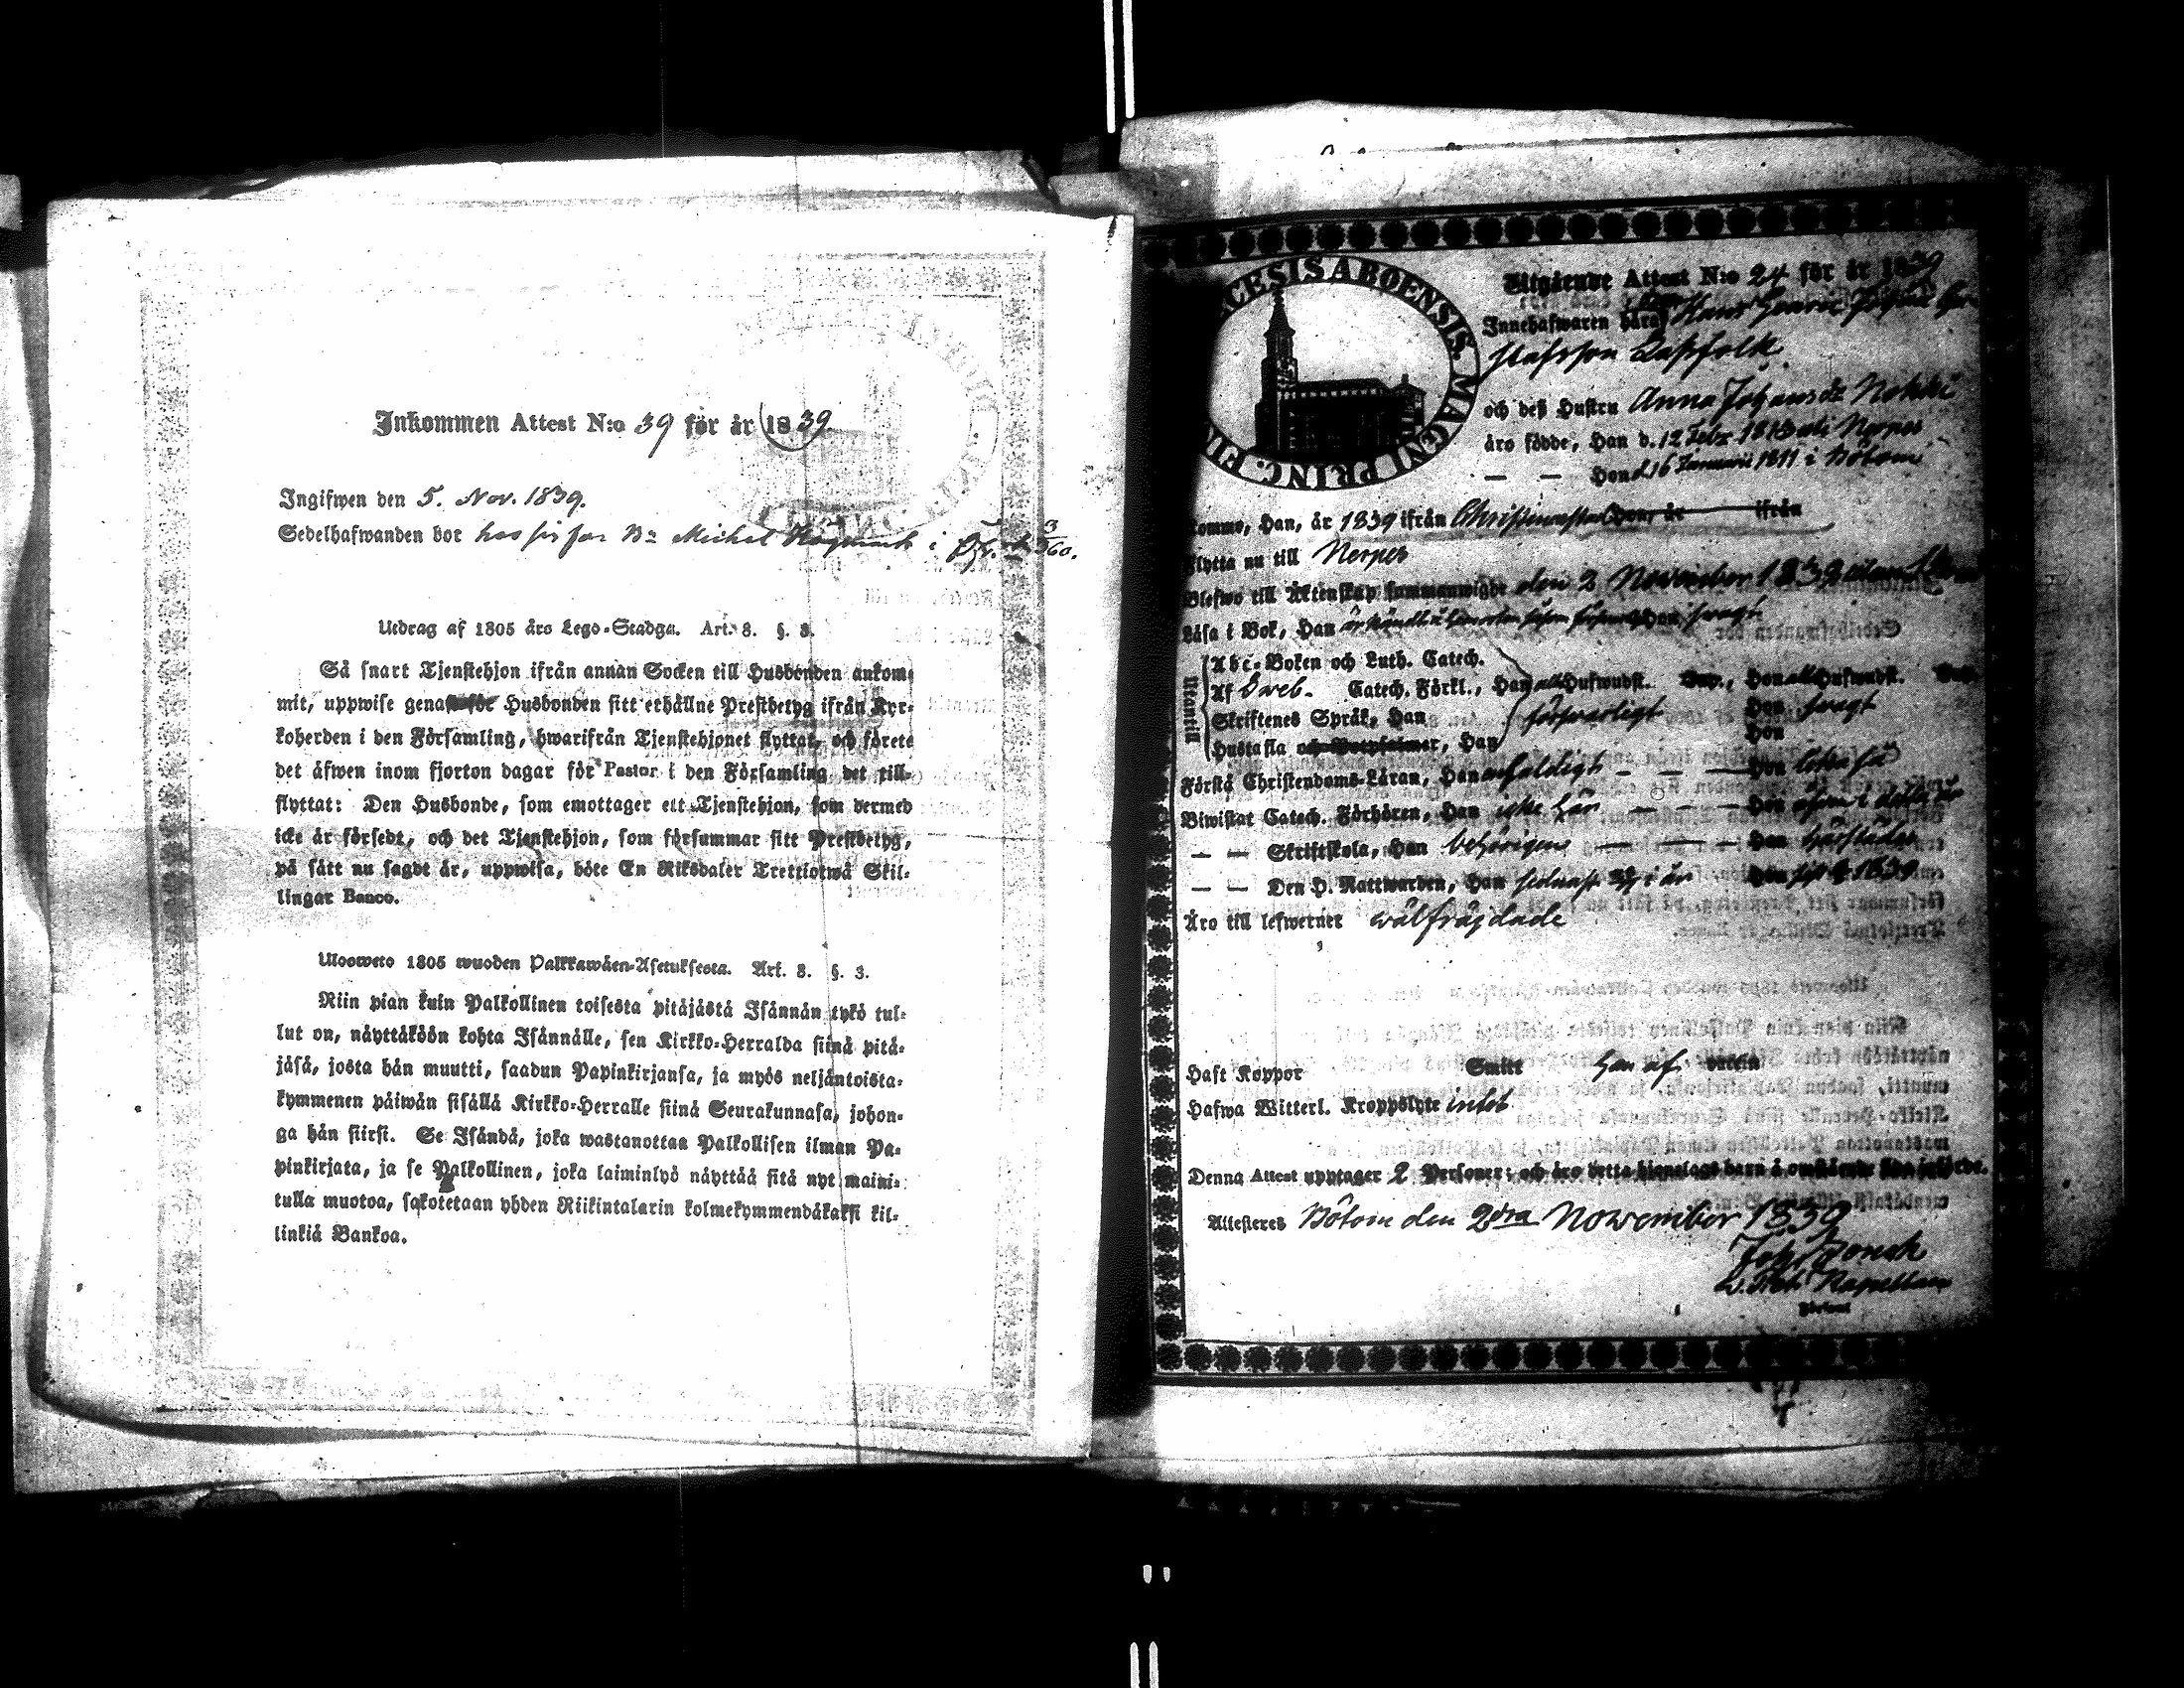 Inkommen Attest N:o 39 för år 1839.
Ingifwen den 5. Nov. 1839.
Sedelhafwanden bor hos Michel i
Utdrag af 1805 års Lego-Stadga. Art. 8. §. 3.
Så snart Tjenstehjon ifrån annan Socken till Husbonden ankom-
mit, uppwise genast för Husbonden sitt erhållne Prestbetyg ifrån Kyr-
koherden i den Församling, hwarifrån Tjenstehjonet flyttat, och förete
det äfwen inom fjorton dagar för Pastor i den Församling det till-
flyttat: Den Husbonde, som emottager ett Tjenstehjon, som dermed
icke är försedt, och det Tjenstehjon, som försummar sitt Prestbetyg,
på sätt nu sagdt är, uppwisa, böte En Riksdaler Trettiotwå Skil-
lingar Banco.
Ulosweto 1805 wuoden Palkkawäen-Asetuksesta. Art. 8. §. 3.
Niin pian kuin Palkollinen toisesta pitäjästä Isännän tykö tul-
lut on, näyttäköön kohta Isännälle, sen Kirkko-Herralda siinä pitä-
jäsä, josta hän muutti, saadun Papinkirjansa, ja myös neljäntoista-
kymmenen päiwän sisällä Kirkko-Herralle siinä Seurakunnasa, johon-
ga hän siirsi. Se Isändä, joka wastanottaa Palkollisen ilman Pa-
pinkirjata, ja se Palkollinen, joka laiminlyö näyttää sitä nyt maini-
tulla muotoa, sakotetaan yhden Riikintalarin kolmekymmendäkaksi kil-
linkiä Bankoa.
DIOECESIS ABOENSIS. MAGNI PRINC. FIN
Utgående Attest N:o 24 för år 1839
Innehafwaren häraf
Lapfolk
och deß Hustru Anna Johansdr
äro födde, Han d. 12 Febr 1813 uti Nerpes
— — Hon d. 16 Januarii 1811 i Bötom
kommo, Han, år 1839 ifrån Christinestad Hon, år ifrån
flytta nu till Nerpes
Blefwo till Äktenskap sammanwigde den 2 November 1839
Läsa i Bok, Han Hon swagt
Utantill
Abc-Boken och Luth. Catech.
Af Sweb. Catech. Förkl., Han all Hufwudst. Hon all Hufwudst.
Skriftenes Språk, Han förswarligt Hon swagt
Hustafla och Botpsalmer, Han Hon
Förstå Christendoms-Läran, Han enfaldigt — — — Hon likaså
Biwistat Catech. Förhören, Han icke här — — — Hon
— — Skriftskola, Han behörigen — — — Hon härstädes
— — Den H. Nattwarden, Han sednast i år Hon 1839
Äro till lefwernet wälfräjdade
Haft Koppor
Hafwa Witterl. Kroppslyte intet
Denna Attest upptager 2 Personer; och äro detta hjonelags barn å omstående sida införde.
Attesteras Bötom den 2dra November 1839